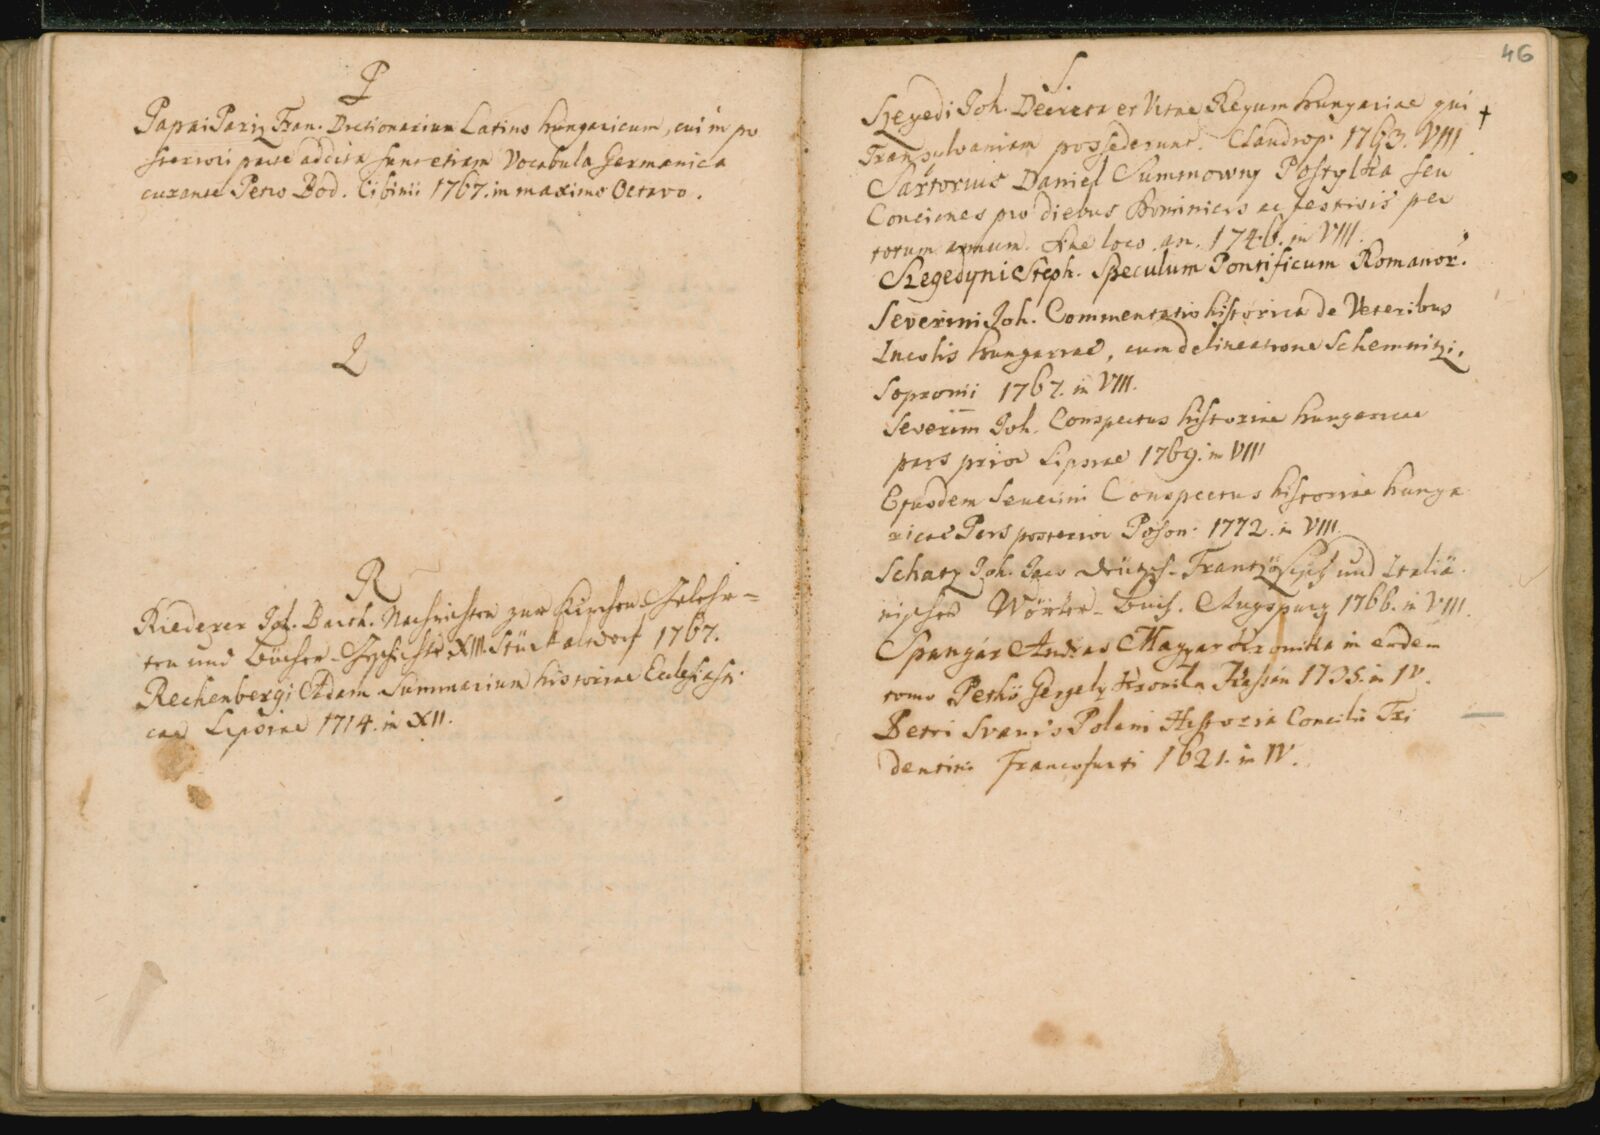 P
Papai Pariz Fran. Dictionarium Latino Hungaricum, cui in po
steriori parte addita sunt etiam Vocabula Germanica
curante Petro Bod. Cibinii 1767. in maximo Octavo.
Q
R
Riederer Joh. Barth. Nachrichten zur Kirchen-Gelehr=
ten und Bücher-Geschichte XIII. Stück altdorf 1767.
Rechenbergi Adam Summarium historiae Ecclesiasti
cae Lipsiae 1714. in XII.
46
S
Szegedi Joh. Decreta et Vitae Regum Hungariae qui †
Transylvaniam possederunt. Claudiop. 1763. VIII
Sartorius Daniel Summowny Postylka seu
Conciones pro diebus Dominicis ac festivis per
totum annum. sine loco an. 1746. in VIII.
Szegedyni Steph. Speculum Pontificum Romanor.
Severini Joh. Commentatio historica de Veteribus
Incolis Hungariae, cum delineatione Schemnitzi.
Sopronii 1767. in VIII.
Severini Joh. Conspectus historiae hungaricae
pars prior Lipsiae 1769. in VIII
Ejusdem Severini Conspectus historiae hunga
ricae Pars posterior Poson. 1772. in VIII.
Schatz Joh. Jac. Deütsch-Frantzösisch und Italiä
nisches Wörter-Buch. Augspurg 1766. in VIII.
Spangár András Magyar Kronika in eodem
tomo Pethö Gergely Kronika Kassán 1735. in IV.
Petri Svavis Polani Historia Concilii Tri
dentini Francofurti 1621. in IV.